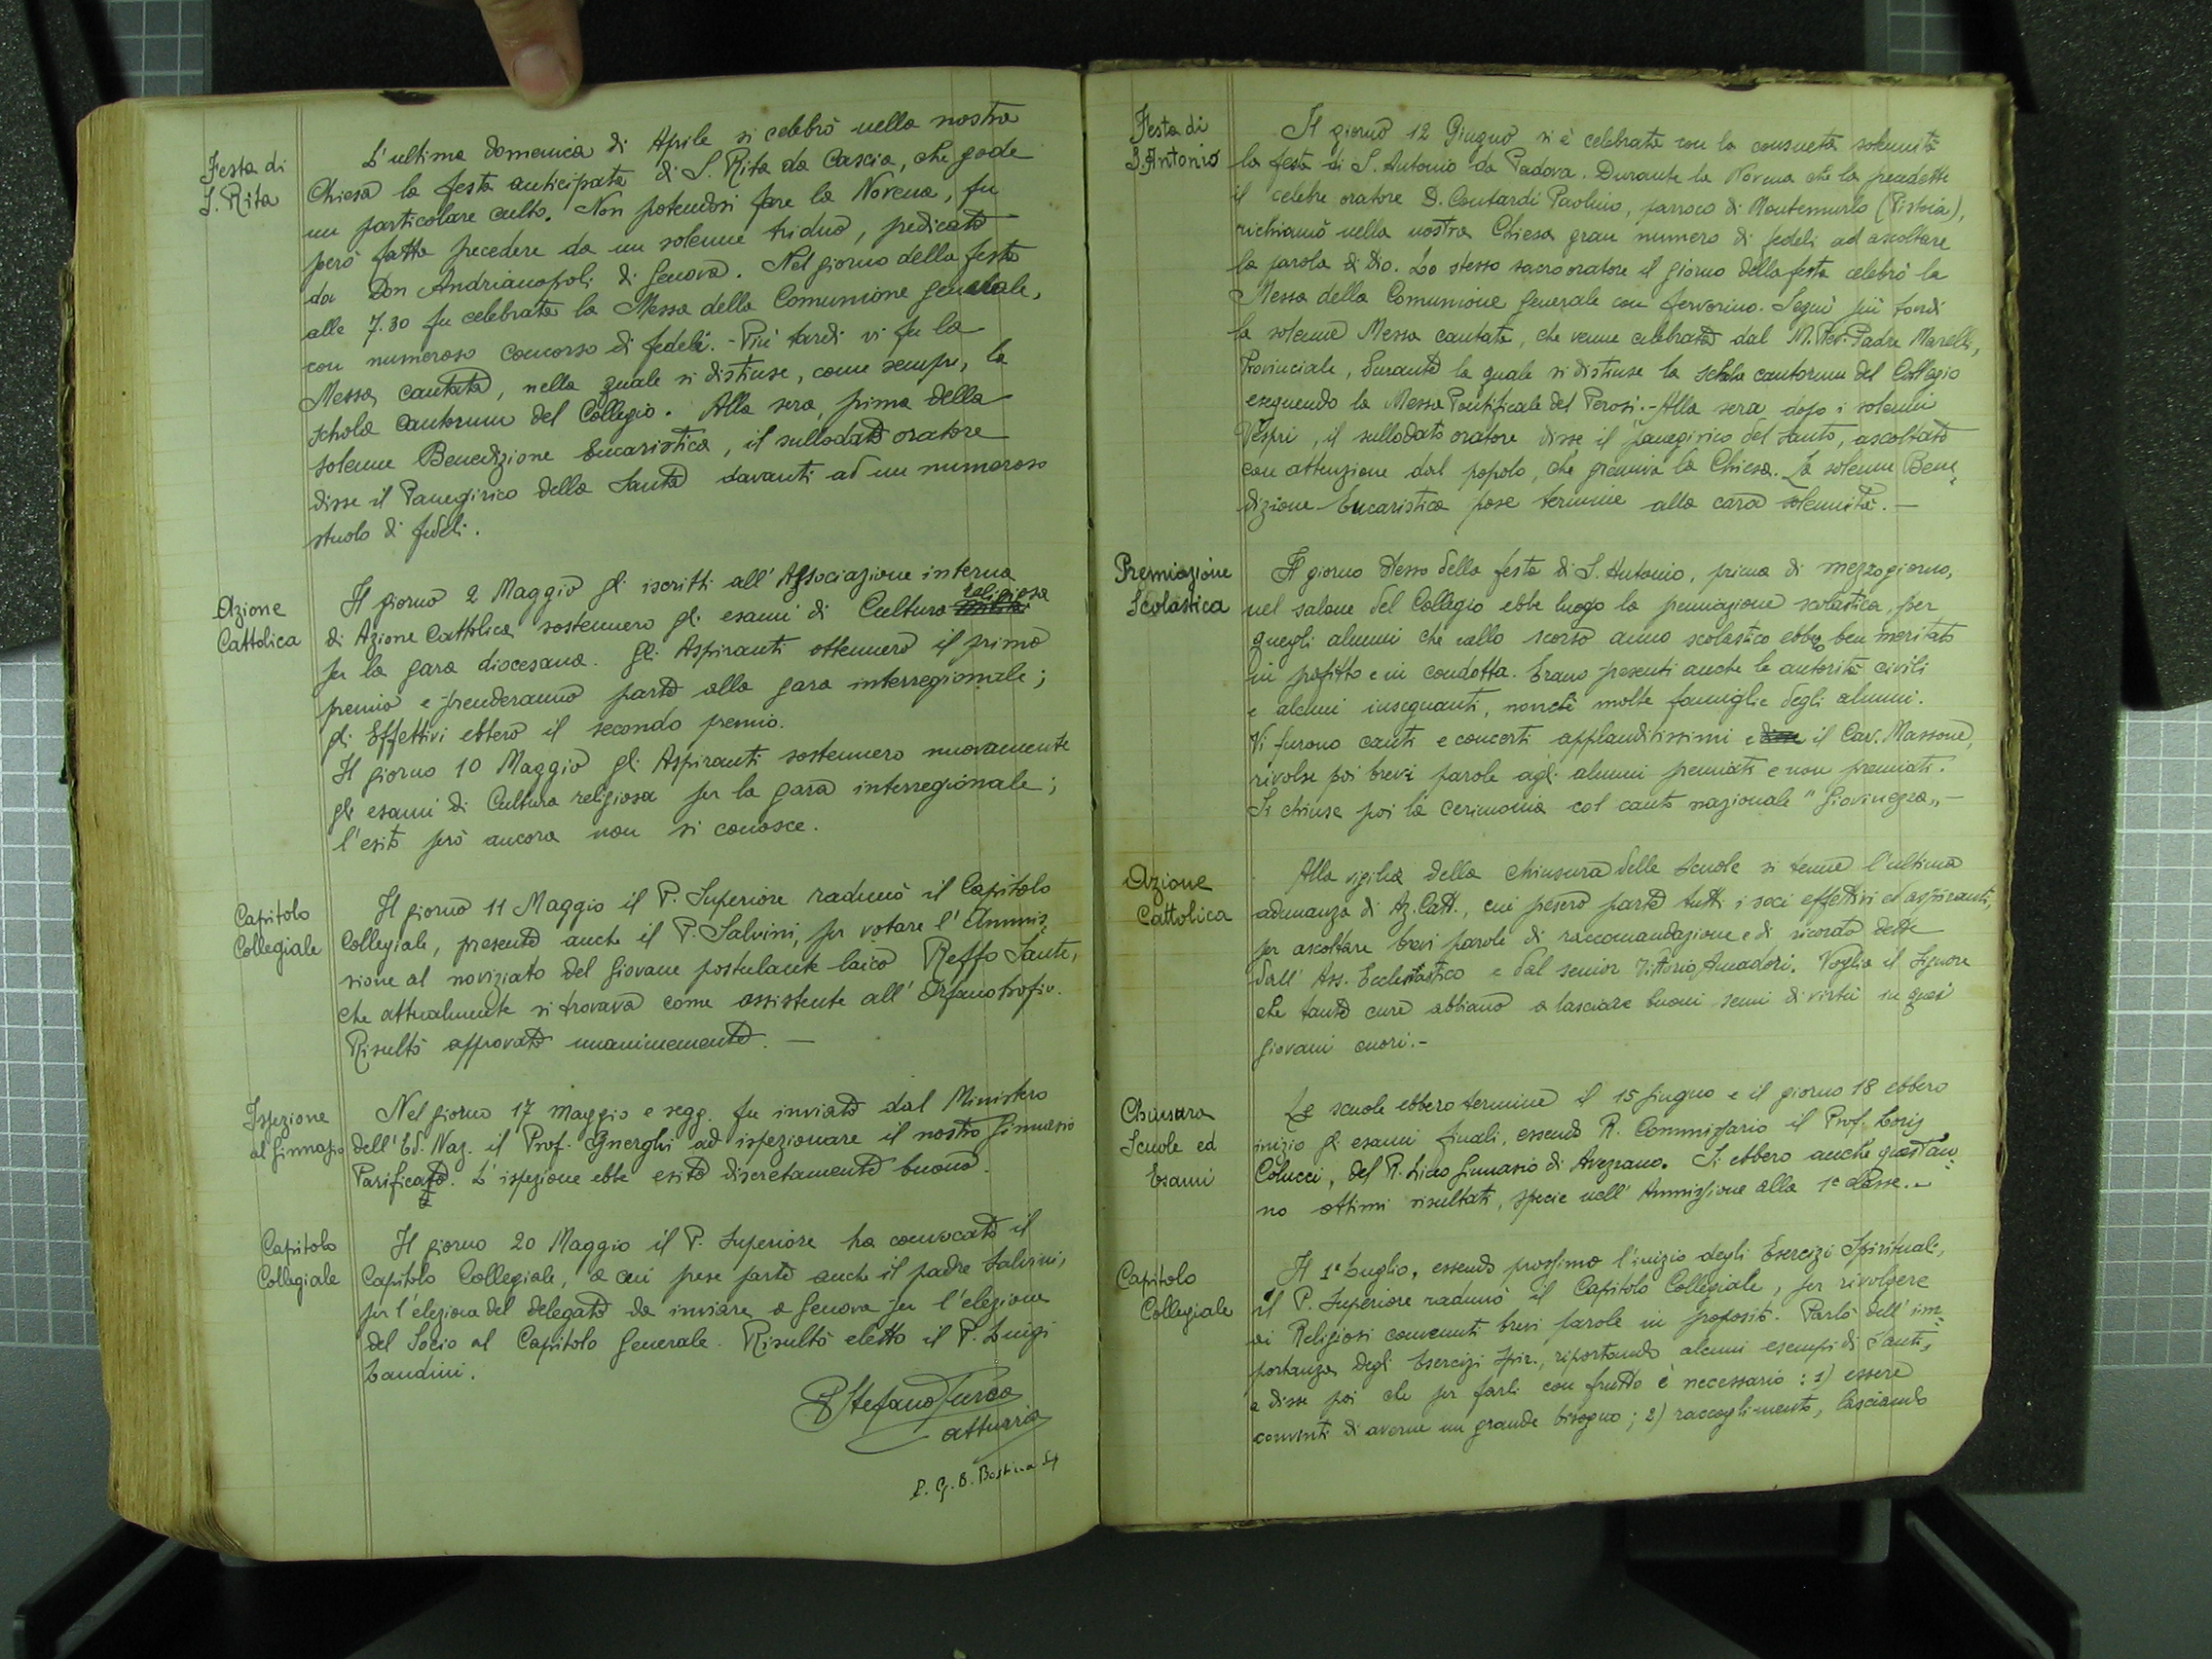 Festa di
S. Rita
L'ultima domenica di Aprile si celebrò nella nostra
Chiesa la festa anticipata di S. Rita da Cascia, che gode
un particolare culto. Non potendosi fare la Novena, fu
però fatta precedere da un solenne triduo, predicato
da Don Andrianopoli di Genova. Nel giorno della festa
alle 7.30 fu celebrata la Messa della Comunione generale,
con numeroso concorso di fedeli. - Più tardi vi fu la
Messa cantata, nella quale si distinse, come sempre, la
schola cantorum del Collegio. Alla sera, prima della
solenne Benedizione Eucaristica, il sullodato oratore
disse il Panegirico della Santa davanti ad un numeroso
stuolo di fedeli.
Azione
Cattolica
Il giorno 2 Maggio gli iscritti all'Associazione interna
di Azione Cattolica sostennero gli esami di Cultura religiosa
per la gara diocesana. Gli Aspiranti ottennero il primo
premio e prenderanno parte alla gara interregionale;
gli Effettivi ebbero il secondo premio.
Il giorno 10 Maggio gli Aspiranti sostennero nuovamente
gli esami di Cultura religiosa per la gara interregionale;
l'esito però ancora non si conosce.
Capitolo
Collegiale
Il giorno 11 Maggio il P. Superiore radunò il Capitolo
Collegiale, presente anche il P. Salvini, per votare l'Ammis-
sione al noviziato del giovane postulante laico Reffo Sante,
che attualmente si trovava come assistente all'Orfanotrofio.
Risultò approvato unanimemente. -
Ispezione
al Ginnasio
Nel giorno 17 Maggio e segg. fu inviato dal Ministero
dell'Ed. Naz. il Prof. Gnerghi ad ispezionare il nostro Ginnasio
Parificato. L'ispezione ebbe esito discretamente buono.
Capitolo
Collegiale
Il giorno 20 Maggio il P. Superiore ha convocato il
Capitolo Collegiale, a cui prese parte anche il padre Salvini,
per l'elezione del delegato da inviare a Genova per l'elezione
del Socio al Capitolo Generale. Risultò eletto il P. Luigi
Landini.
P Stefano Turco
attuario
P. G. B.
Festa di
S. Antonio
Il giorno 12 Giugno si è celebrata con la consueta solennità
la festa di S. Antonio da Padova. Durante la Novena che la precedette
il celebre oratore D. Contardi Paolino, parroco di Montemurlo (Pistoia),
richiamò nella nostra Chiesa gran numero di fedeli ad ascoltare
la parola di Dio. Lo stesso sacro oratore il giorno della festa celebrò la
Messa della Comunione generale con fervorino. Seguì più tardi
la solenne Messa cantata, che venne celebrata dal M. Rev. Padre Marelli,
Provinciale, durante la quale si distinse la schola cantorum del Collegio
eseguendo la Messa Pontificale del Perosi. - Alla sera, dopo i solenni
Vespri, il sullodato oratore disse il panegirico del Santo, ascoltato
con attenzione dal popolo, che gremiva la Chiesa. La solenne Bene-
dizione Eucaristica pose termine alla cara solennità. -
Premiazione
Scolastica
Il giorno stesso della festa di S. Antonio, prima di mezzogiorno,
nel salone del Collegio ebbe luogo la premiazione scolastica, per
quegli alunni che nello scorso anno scolastico ebbero ben meritato
in profitto e in condotta. Erano presenti anche le autorità civili
e alcuni insegnanti, nonchè molte famiglie degli alunni.
Vi furono canti e concerti applauditissimi e il Cav. Massone,
rivolse poi brevi parole agli alunni premiati e non premiati.
Si chiuse poi la cerimonia col canto nazionale "Giovinezza„ -
Azione
Cattolica
Alla vigilia della chiusura delle Scuole si tenne l'ultima
adunanza di Az. Catt., cui presero parte tutti i soci effettivi ed aspiranti,
per ascoltare brevi parole di raccomandazione e di ricordo dette
dall'Ass. Ecclesiastico e dal senior Vittorio Amadori. Voglia il Signore
che tante cure abbiano a lasciare buoni semi di virtù in quei
giovani cuori. -
Chiusura
Scuole ed
Esami
Le scuole ebbero termine il 15 giugno e il giorno 18 ebbero
inizio gli esami finali, essendo R. Commissario il Prof. Loris
Colucci, del R. Liceo Ginnasio di Avezzano. Si ebbero anche quest'an-
no ottimi risultati, specie nell'Ammissione alla 1ª classe. -
Capitolo
Collegiale
Il 1º Luglio, essendo prossimo l'inizio degli Esercizi Spirituali,
il P. Superiore radunò il Capitolo Collegiale, per rivolgere
ai Religiosi convenuti brevi parole in proposito. Parlò dell'im-
portanza degli Esercizi Spir., riportando alcuni esempi di Santi,
e disse poi che per farli con frutto è necessario: 1) essere
convinti di averne un grande bisogno; 2) raccoglimento, lasciando